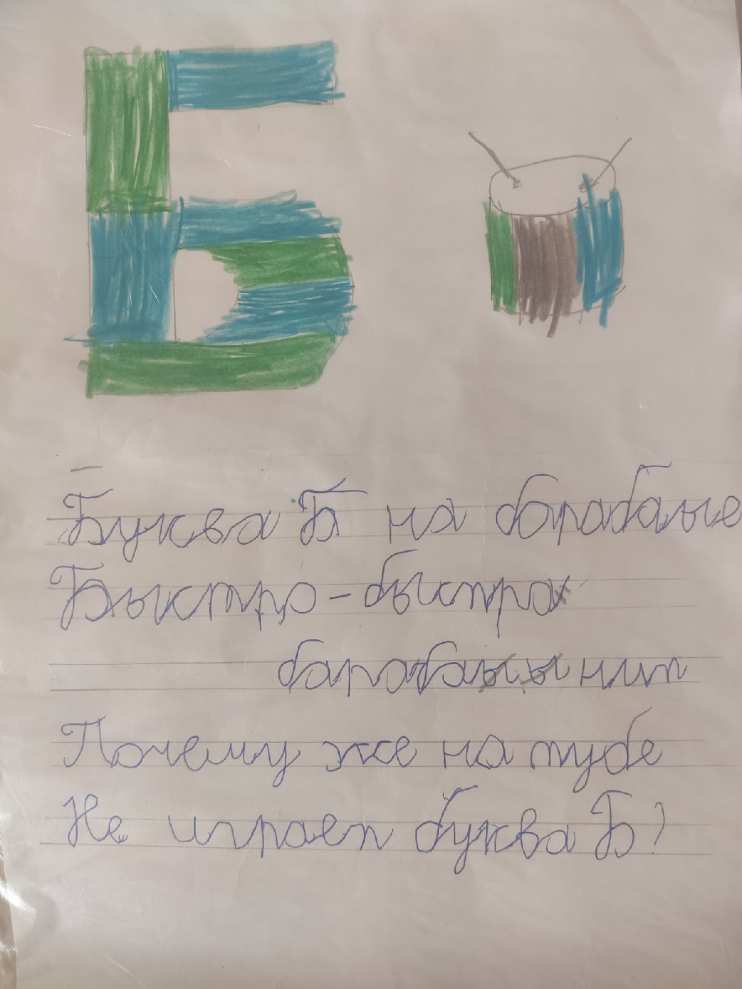 Б
Буква Б на барабане
Быстро-быстро
барабанит
Почему же на тубе
Не играет буква Б?